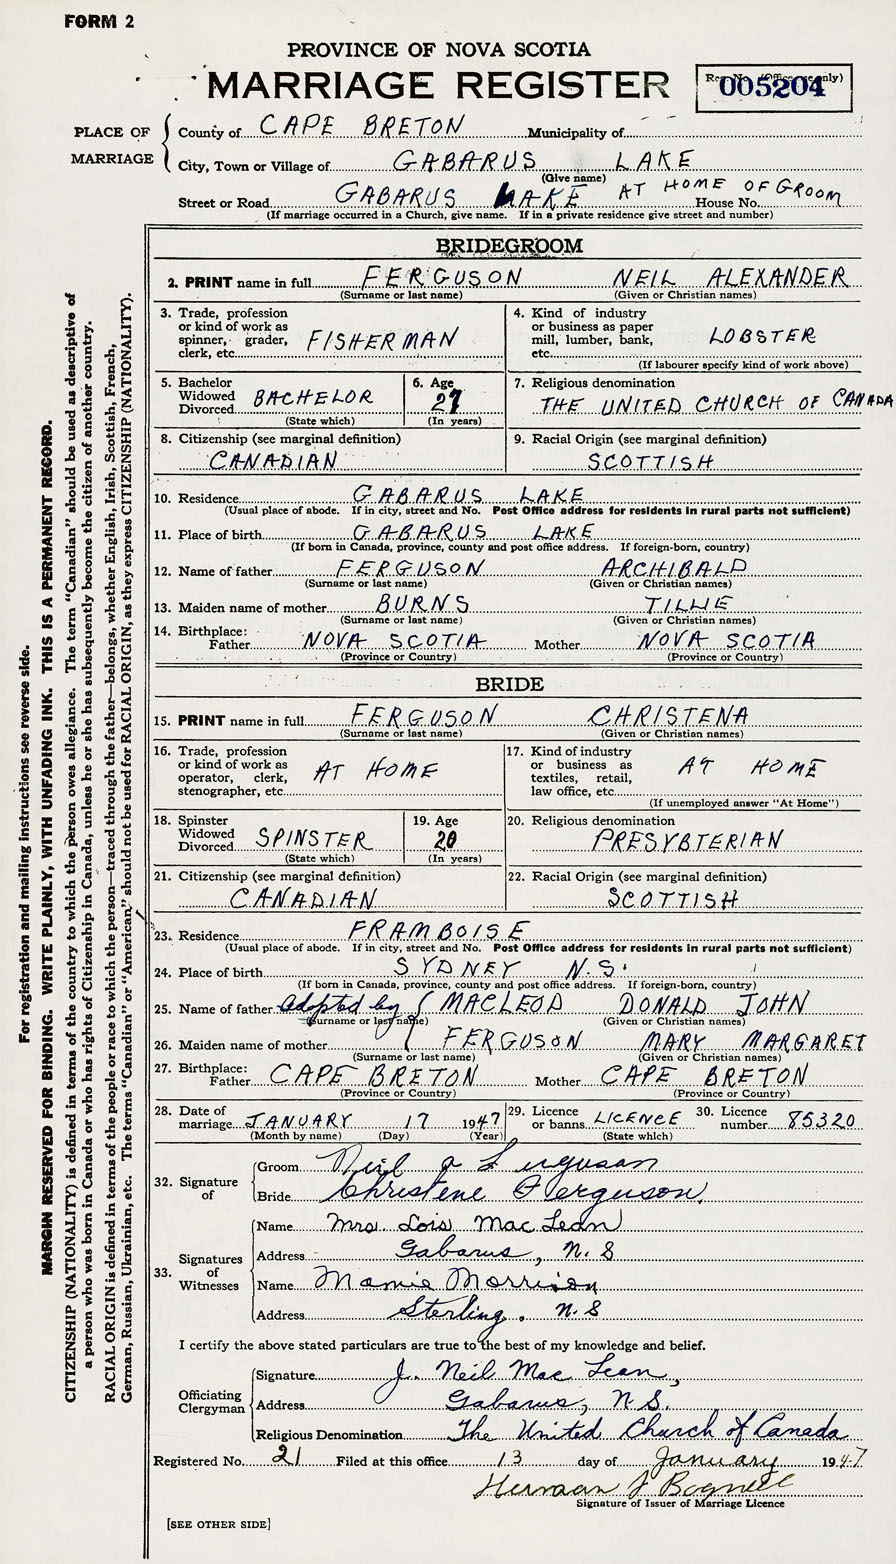 FORM 2
PROVINCE OF NOVA SCOTIA
MARRIAGE REGISTER
Reg. No. (Office use only)
005204
PLACE OF MARRIAGE
County of CAPE BRETON Municipality of
City, Town or Village of GABARUS LAKE
(Give name)
Street or Road GABARUS LAKE AT HOME OF GROOM House No.
(If marriage occurred in a Church, give name. If in a private residence give street and number)
BRIDEGROOM
2. PRINT name in full FERGUSON NEIL ALEXANDER
(Surname or last name) (Given or Christian names)
3. Trade, profession or kind of work as spinner, grader, clerk, etc. FISHERMAN
4. Kind of industry or business as paper mill, lumber, bank, etc. LOBSTER
(If labourer specify kind of work above)
5. Bachelor Widowed Divorced BACHELOR
(State which)
6. Age 27
(In years)
7. Religious denomination
THE UNITED CHURCH OF CANADA
8. Citizenship (see marginal definition)
CANADIAN
9. Racial Origin (see marginal definition)
SCOTTISH
10. Residence GABARUS LAKE
(Usual place of abode. If in city, street and No. Post Office address for residents in rural parts not sufficient)
11. Place of birth GABARUS LAKE
(If born in Canada, province, county and post office address. If foreign-born, country)
12. Name of father FERGUSON ARCHIBALD
(Surname or last name) (Given or Christian names)
13. Maiden name of mother BURNS TILLIE
(Surname or last name) (Given or Christian names)
14. Birthplace: Father NOVA SCOTIA Mother NOVA SCOTIA
(Province or Country) (Province or Country)
BRIDE
15. PRINT name in full FERGUSON CHRISTENA
(Surname or last name) (Given or Christian names)
16. Trade, profession or kind of work as operator, clerk, stenographer, etc. AT HOME
17. Kind of industry or business as textiles, retail, law office, etc. AT HOME
(If unemployed answer "At Home")
18. Spinster Widowed Divorced SPINSTER
(State which)
19. Age 20
(In years)
20. Religious denomination
PRESYBTERIAN
21. Citizenship (see marginal definition)
CANADIAN
22. Racial Origin (see marginal definition)
SCOTTISH
23. Residence FRAMBOISE
(Usual place of abode. If in city, street and No. Post Office address for residents in rural parts not sufficient)
24. Place of birth SYDNEY N.S.
(If born in Canada, province, county and post office address. If foreign-born, country)
25. Name of father Adopted by MACLEOD DONALD JOHN
(Surname or last name) (Given or Christian names)
26. Maiden name of mother FERGUSON MARY MARGARET
(Surname or last name) (Given or Christian names)
27. Birthplace: Father CAPE BRETON Mother CAPE BRETON
(Province or Country) (Province or Country)
28. Date of marriage JANUARY 17 1947
(Month by name) (Day) (Year)
29. Licence or banns LICENCE
(State which)
30. Licence number 85320
32. Signature of
Groom Neil A Ferguson
Bride Christene Ferguson.
33. Signatures of Witnesses
Name Mrs Lois MacLean
Address Gabarus, N.S
Name Mamie Morrison
Address Sterling. N.S
I certify the above stated particulars are true to the best of my knowledge and belief.
Officiating Clergyman
Signature J. Neil MacLean,
Address Gabarus, N.S.
Religious Denomination The United Church of Canada
Registered No. 21 Filed at this office 13 day of January 1947
Herman J Bagnell
Signature of Issuer of Marriage Licence
[SEE OTHER SIDE]
For registration and mailing instructions see reverse side.
MARGIN RESERVED FOR BINDING. WRITE PLAINLY, WITH UNFADING INK. THIS IS A PERMANENT RECORD.
CITIZENSHIP (NATIONALITY) is defined in terms of the country to which the person owes allegiance. The term "Canadian" should be used as descriptive of
a person who was born in Canada or who has rights of Citizenship in Canada, unless he or she has subsequently become the citizen of another country.
RACIAL ORIGIN is defined in terms of the people or race to which the person—traced through the father—belongs, whether English, Irish, Scottish, French,
German, Russian, Ukrainian, etc. The terms "Canadian" or "American," should not be used for RACIAL ORIGIN, as they express CITIZENSHIP (NATIONALITY).